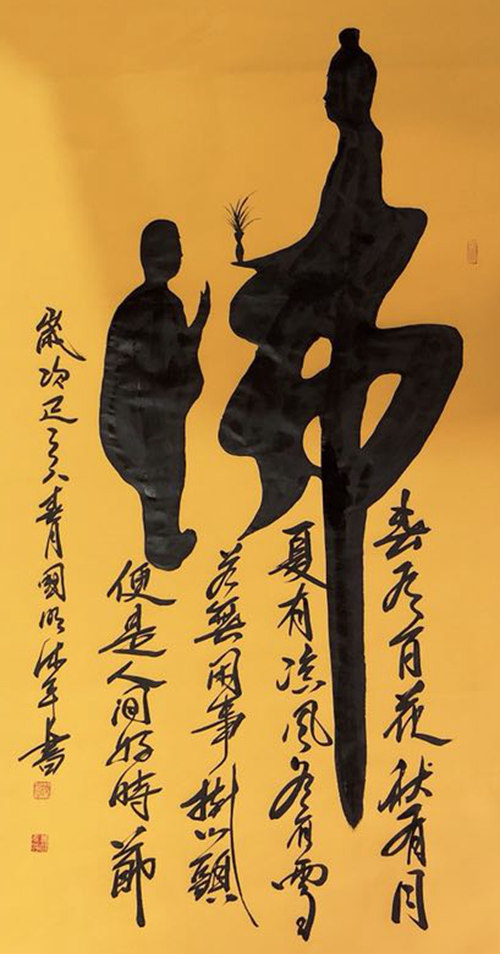 佛
春有百花秋有月
夏有凉風冬有雪
若無閑事掛心頭
便是人间好時節
歲次 月國明沐手書